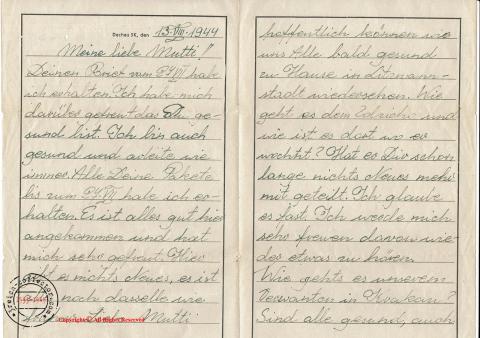 Dachau 3K, den 13.VIII.1944
Meine liebe Mutti!
Deinen Brief vom 24.VII habe
ich erhalten. Ich habe mich
darüber gefreut das Du ge-
sund bist. Ich bin auch
gesund und arbeite wie
immer. Alle Deine Pakete
bis zum habe ich er-
halten. Es ist alles gut hier
angekommen und hat
mich sehr gefreut. Hier
es nichts Neues, es ist
noch dasselbe wie
Liebe Mutti
Copyrights All Rights Reserved
hoffentlich können wir
uns Alle bald gesund
zu Hause in Litzmann-
stadt wiedersehen. Wie
geht es dem und
wie ist es dort wo er
wohnt? Hat es Dir schon
lange nichts Neues mehr
mit geteilt. Ich glaube
es fast. Ich werde mich
sehr freuen davon wie-
der etwas zu hören.
Wie gehts es unserem
Verwanten in Krakau?
Sind alle gesund, auch